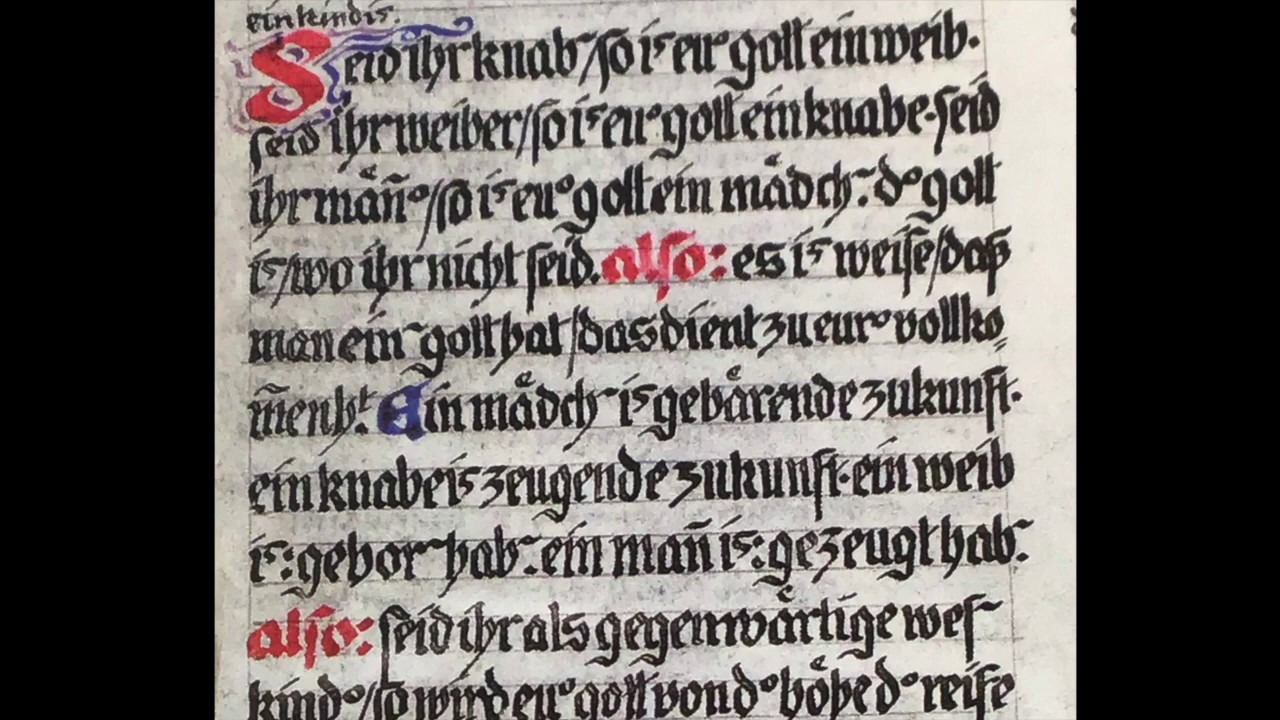 ein kind is.
Seid ihr knab~/so is eu~ gott ein weib.
seid ihr weiber/so is eu~ gott ein knabe. seid
ihr mäñ°/so is eu° gott ein mädch~. d° gott
is/wo ihr nicht seid. also: es is weise/daß
man ein~ gott hat/das dient zu eur° vollko=
m̃enh^t. Ein mädch~ is gebärende zukunft.
ein knabe is zeugende zukunft. ein weib
is: gebor~ hab~. ein mañ is: gezeugt hab~.
also: seid ihr als gegenwärtige wes~
kind°/so wird eu° gott von d° höhe d° reife